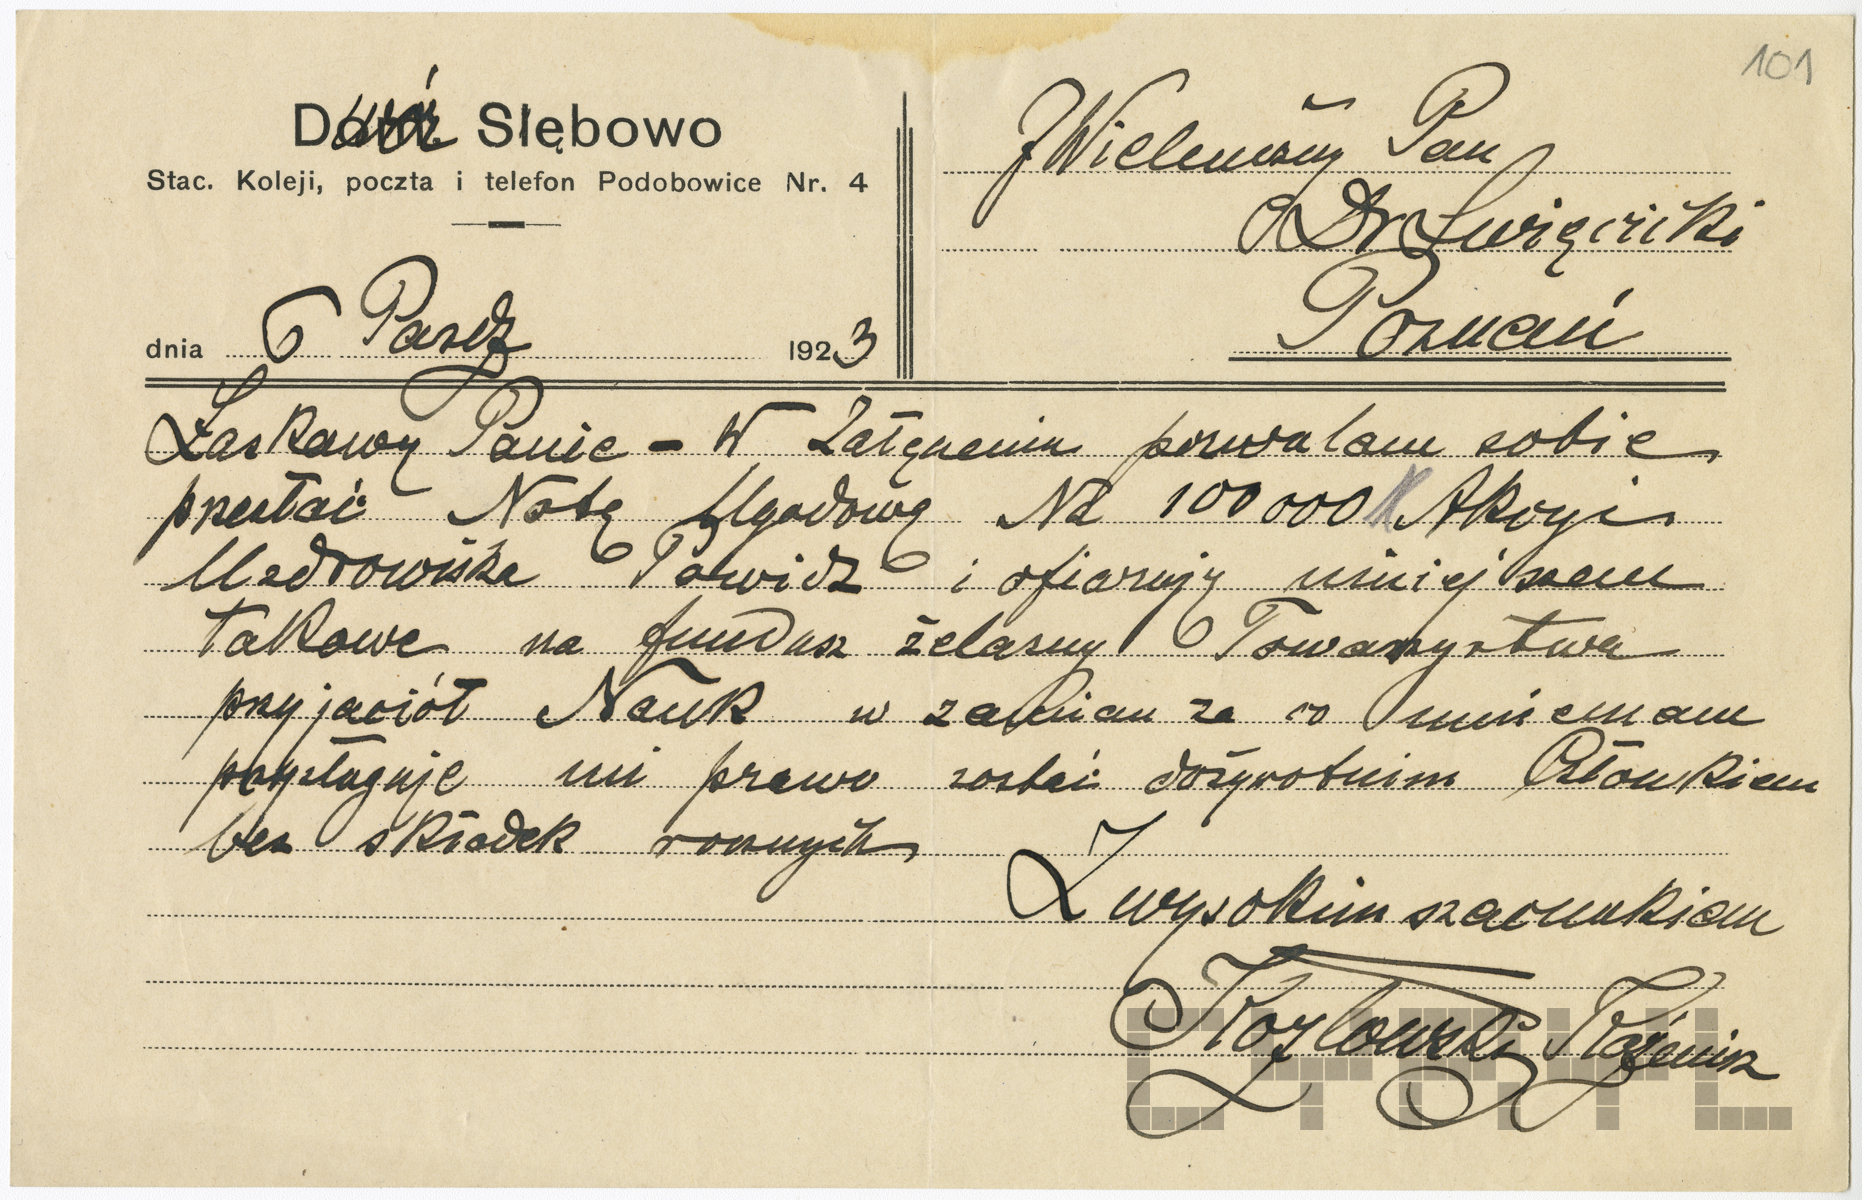 101
Dwór Słębowo
Stac. Koleji, poczta i telefon Podobowice Nr. 4
JWielmożny Pan
Dr Święcicki
Poznań
dnia 6 Paźdz 1923
Łaskawy Panie - W Załączeniu pozwalam sobie
przesłać Notę Ugodową Na 100000 Akcyi
Modrowiska Powidz i ofiaruję niniejszem
takowe na fundusz żelazny Towarzystwa
przyjaciół Nauk w zamian za co mniemam
przysługuje mi prawo zostać dożywotnim Członkiem
bez składek rocznych
Z wysokim szacunkiem
Kozłowski